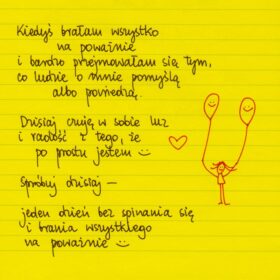 Kiedyś brałam wszystko
na poważnie
i bardzo przejmowałam się tym,
co ludzie o mnie pomyślą
albo powiedzą.
Dzisiaj czuję w sobie luz
i radość z tego, że
po prostu jestem
Spróbuj dzisiaj —
jeden dzień bez spinania się
i brania wszystkiego
na poważnie